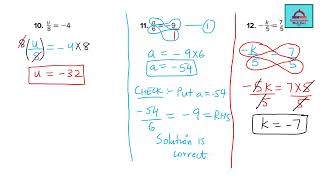 10. u/8 = -4
8(u/8) = -4 × 8
u = -32
11. a/6 = -9
1
1
a = -9×6
a = -54
CHECK :- Put a = -54
-54/6 = -9 = RHS
Solution is
correct
12. -k/5 = 7/5
-k 7
5 5
-5k/5 = 7×5/5
k = -7